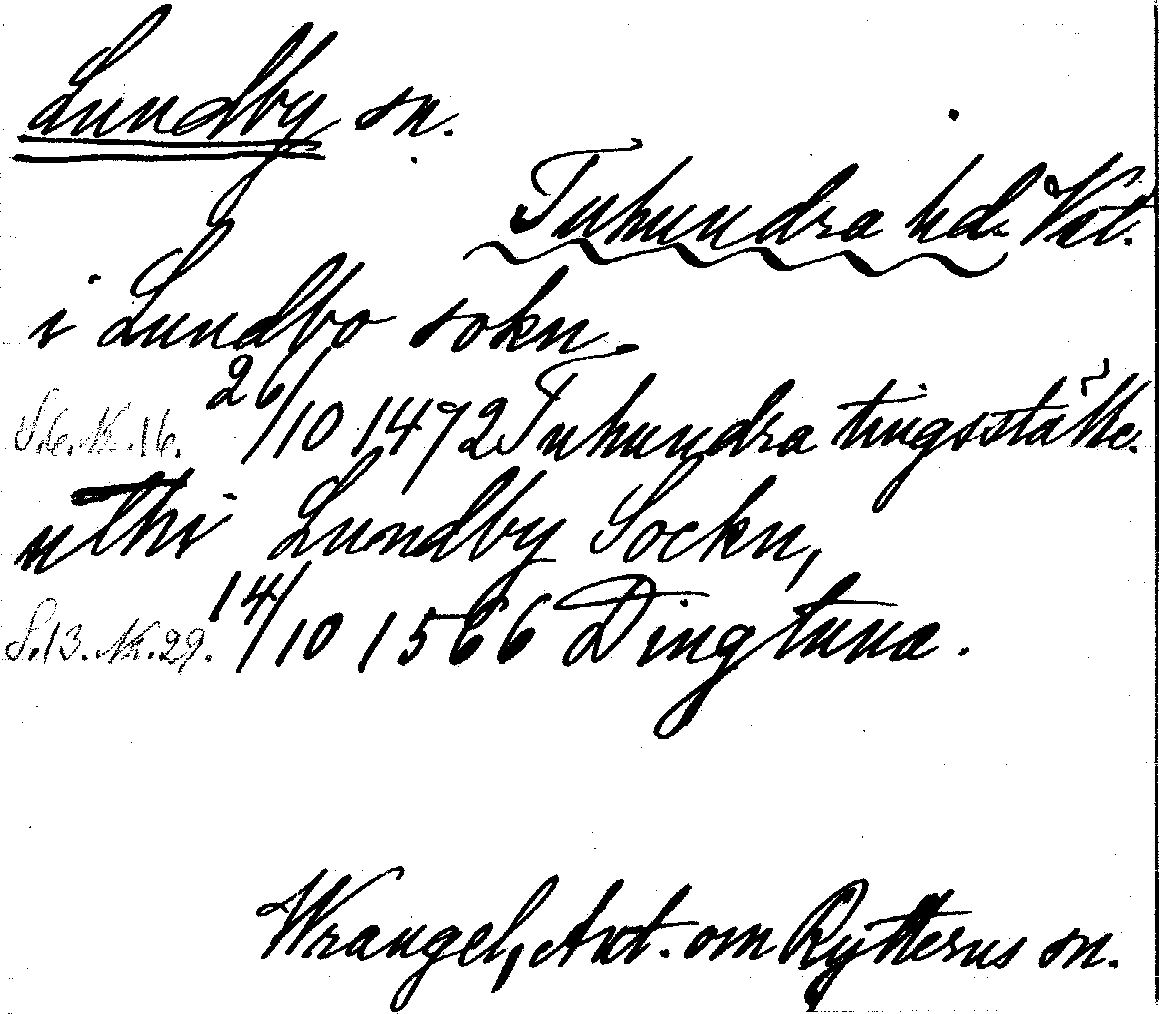 Lundby sn.
Tuhundra hd. Vst.
i Lundbo sokn.
S. 6. N. 16. 26/10 1472 Tuhundra tingsställe.
uthi Lundby Sockn,
S. 13. N. 29. 14/10 1566 Dingtuna.
Wrangel, Ant. om Rytterns sn.